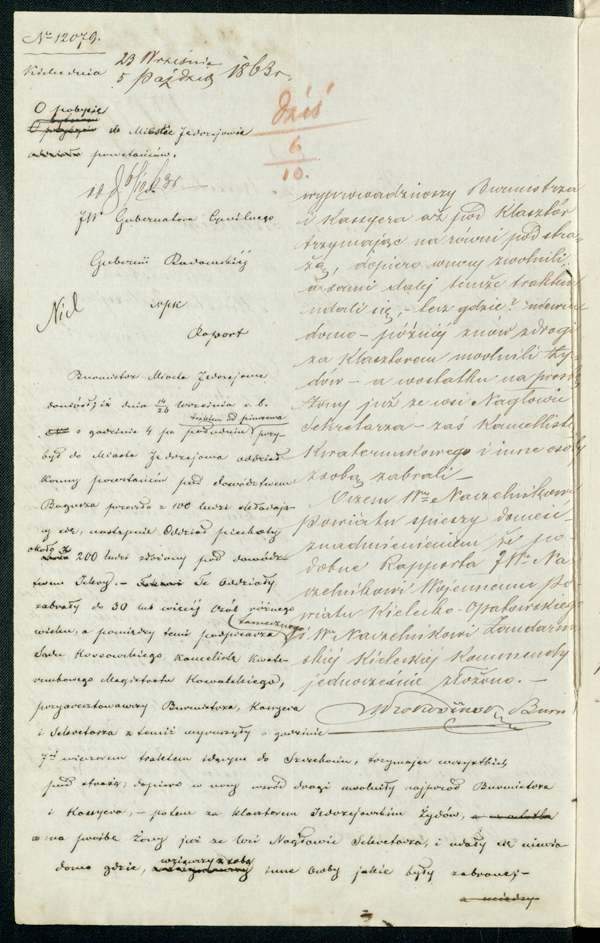 No 12079.
Kielce dnia 23 Września
5 Paźdz. 1863 r.
dziś
6
10.
O pobycie
w Mieście Jędrzejowie
powstańców.
JW Gubernatora Cywilnego
Gubernii Radomskiej
Nicl
wpk
Raport
Burmistrz Miasta Jędrzejowa
doniósł, iż dnia 14/26 Września r. b.
traktem od Pinczowa
o godzinie 4 po południu przy-
był do Miasta Jędrzejowa oddział
konny powstańców pod dowództwem
z 100 ludzi składają-
cy się, następnie Oddział piechoty
około
200 ludzi złożony pod dowódz-
twem Iskry. – Te Oddziały
zabrały do 30 lub więcej Osób różnego
tamecznego
wieku, a pomiędzy temi podpisarza
Sądu Kossowskiego, kancelistę kwate-
runkowego Magistratu Kowalskiego,
przyaresztowawszy Burmistrza, Kassyera
i Sekretarza z temiż wyruszyły o godzinie
7éj wieczorem traktem idącym do Szczekocin, trzymając wszystkich
pod strażą; dopiero w nocy wśród drogi uwolniły najprzód Burmistrza
i Kassyera, – potem za klasztorem Jędrzejowskim Żydów,
a na prośbę Żony już ze Wsi Nagłowic Sekretarza, i udały się niewia-
domo gdzie, wziąwszy z sobą inne Osoby jakie były zabrane; –
a między
wyprowadziwszy Burmistrza
i Kassyera aż pod Klasztór
trzymając na równi pod stra-
żą, dopiero w nocy zwolnili,
a sami dalej tymże traktem
udali się, – lecz gdzie? niewia-
domo – później znów z drogi
za Klasztorem uwolnili Ży-
dów – a w ostatku na prośbę
Żony już ze wsi Nagłowic
Sekretarza – zaś Kancellistę
Kwaterunkowego i inne osoby
z sobą zabrali –
O czem Wmu Naczelnikowi
Powiatu spieszy donieść
z nadmienieniem że po-
dobne Rapporta JWmu Na-
czelnikowi Wojennemu Po-
wiatu Kielecko-Opatowskiego
i Wmu Naczelnikowi Żandarm-
skiej Kieleckiej Kommendy
jednocześnie złożono. –
Burm